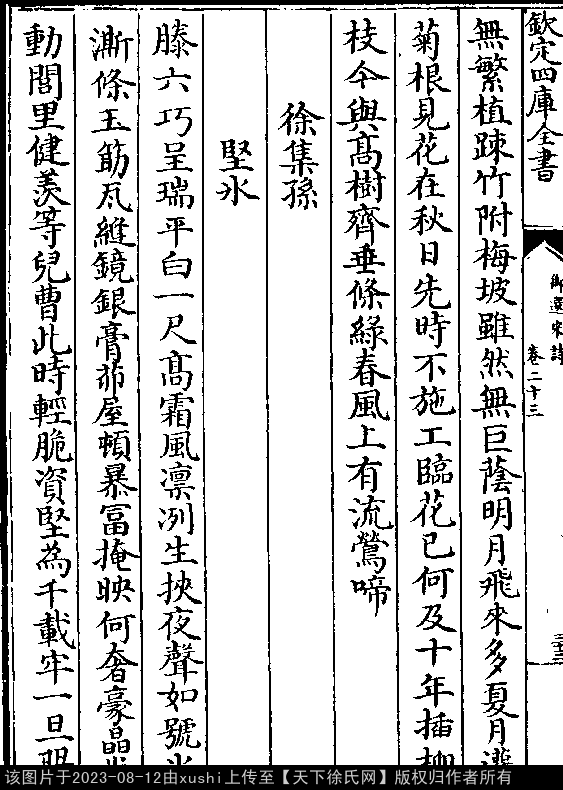 欽定四庫全書
御選宋詩
卷二十三
無繁植踈竹附梅坡雖然無巨蔭明月飛來多夏月灌
菊根見花在秋日先時不施工臨花已何及十年插柳
枝今與髙樹齊垂條綠春風上有流鶯啼
徐集孫
堅冰
滕六巧呈瑞平白一尺髙霜風凛冽生挾夜聲如號
澌條玉筯瓦縫鏡銀膏茆屋頓暴富掩映何奢豪晶
動閭里健羡等兒曹此時輕脆資堅為千載牢一旦
该图片于2023-08-12由xushi上传至【天下徐氏网】版权归作者所有